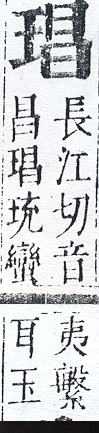 琩
長江切音
昌琩珫蠻
夷繫
耳玉